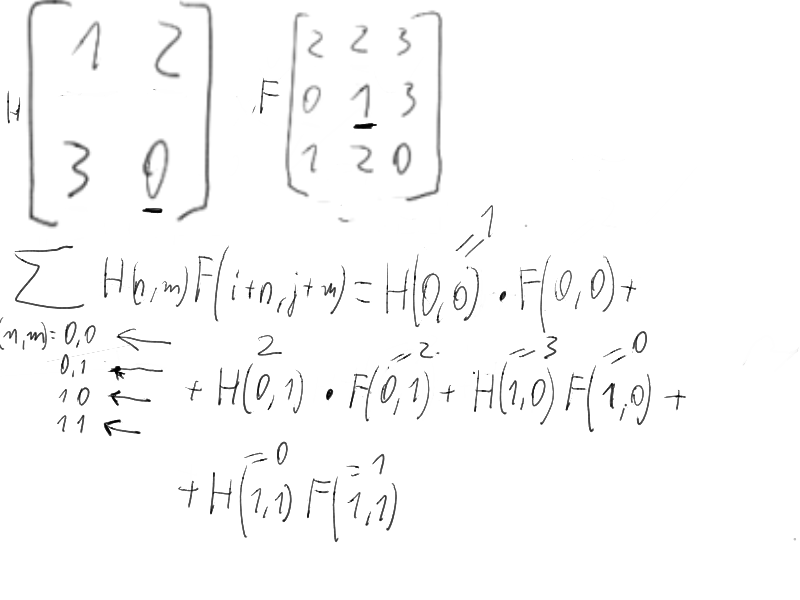 H [ 1 2
3 0 ]
F [ 2 2 3
0 1 3
1 2 0 ]
∑ H(n,m)F(i+n,j+m) = H(0,0) · F(0,0) +
=1
(n,m)=0,0 ←
0,1 ←
1 0 ←
1 1 ←
2 =2 =3 =0
+ H(0,1) · F(0,1) + H(1,0) F(1,0) +
=0 =1
+ H(1,1) F(1,1)